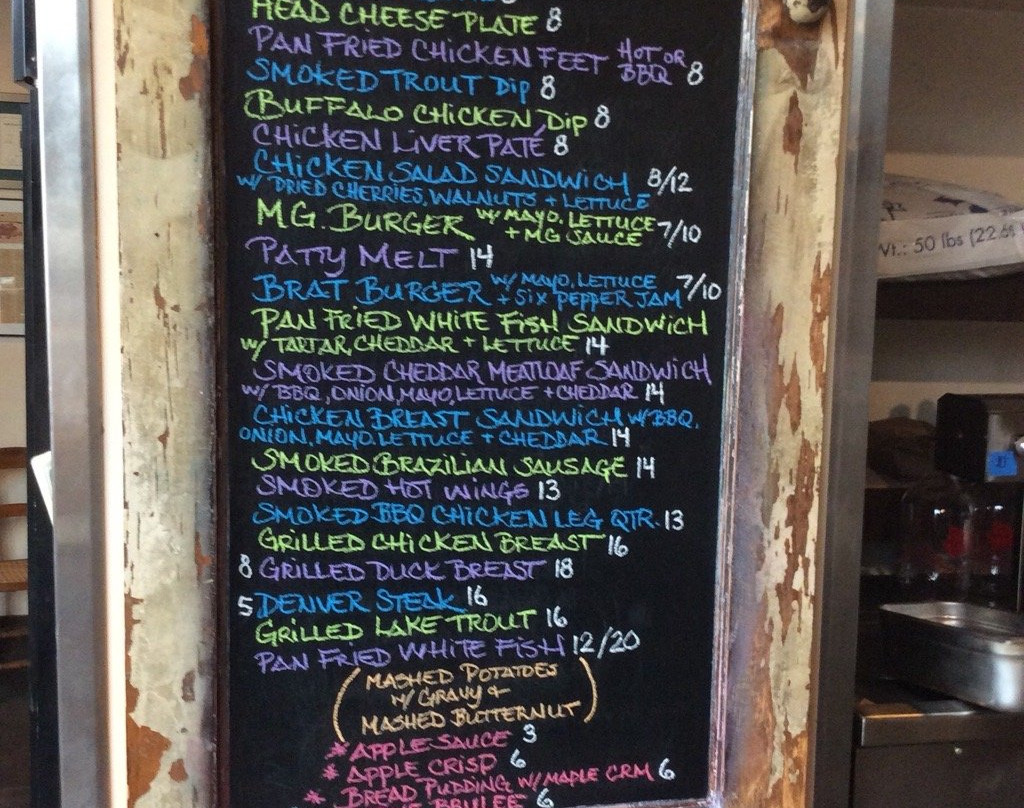 HEAD CHEESE PLATE 8
PAN FRIED CHICKEN FEET HOT OR BBQ 8
SMOKED TROUT Dip 8
BUFFALO CHICKEN Dip 8
CHICKEN LIVER PATÉ 8
CHICKEN SALAD SANDWICH 8/12
W/ DRIED CHERRIES, WALNUTS + LETTUCE
MG. BURGER W/ MAYO, LETTUCE + MG SAUCE 7/10
PATTY MELT 14
BRAT BURGER W/ MAYO, LETTUCE + SIX PEPPER JAM 7/10
PAN FRIED WHITE FISH SANDWICH
W/ TARTAR, CHEDDAR + LETTUCE 14
SMOKED CHEDDAR MEATLOAF SANDWICH
W/ BBQ, ONION, MAYO, LETTUCE + CHEDDAR 14
CHICKEN BREAST SANDWICH W/ BBQ,
ONION, MAYO, LETTUCE + CHEDDAR 14
SMOKED BRAZILIAN SAUSAGE 14
SMOKED HOT WINGS 13
SMOKED BBQ CHICKEN LEG QTR. 13
GRILLED CHICKEN BREAST 16
8 GRILLED DUCK BREAST 18
5 DENVER STEAK 16
GRILLED LAKE TROUT 16
PAN FRIED WHITE FISH 12/20
(MASHED POTATOES
W/ GRAVY +
MASHED BUTTERNUT)
* APPLE SAUCE 3
* APPLE CRISP 6
* BREAD PUDDING W/ MAPLE CRM 6
BRULEE 6
Wt.: 50 lbs (22.68